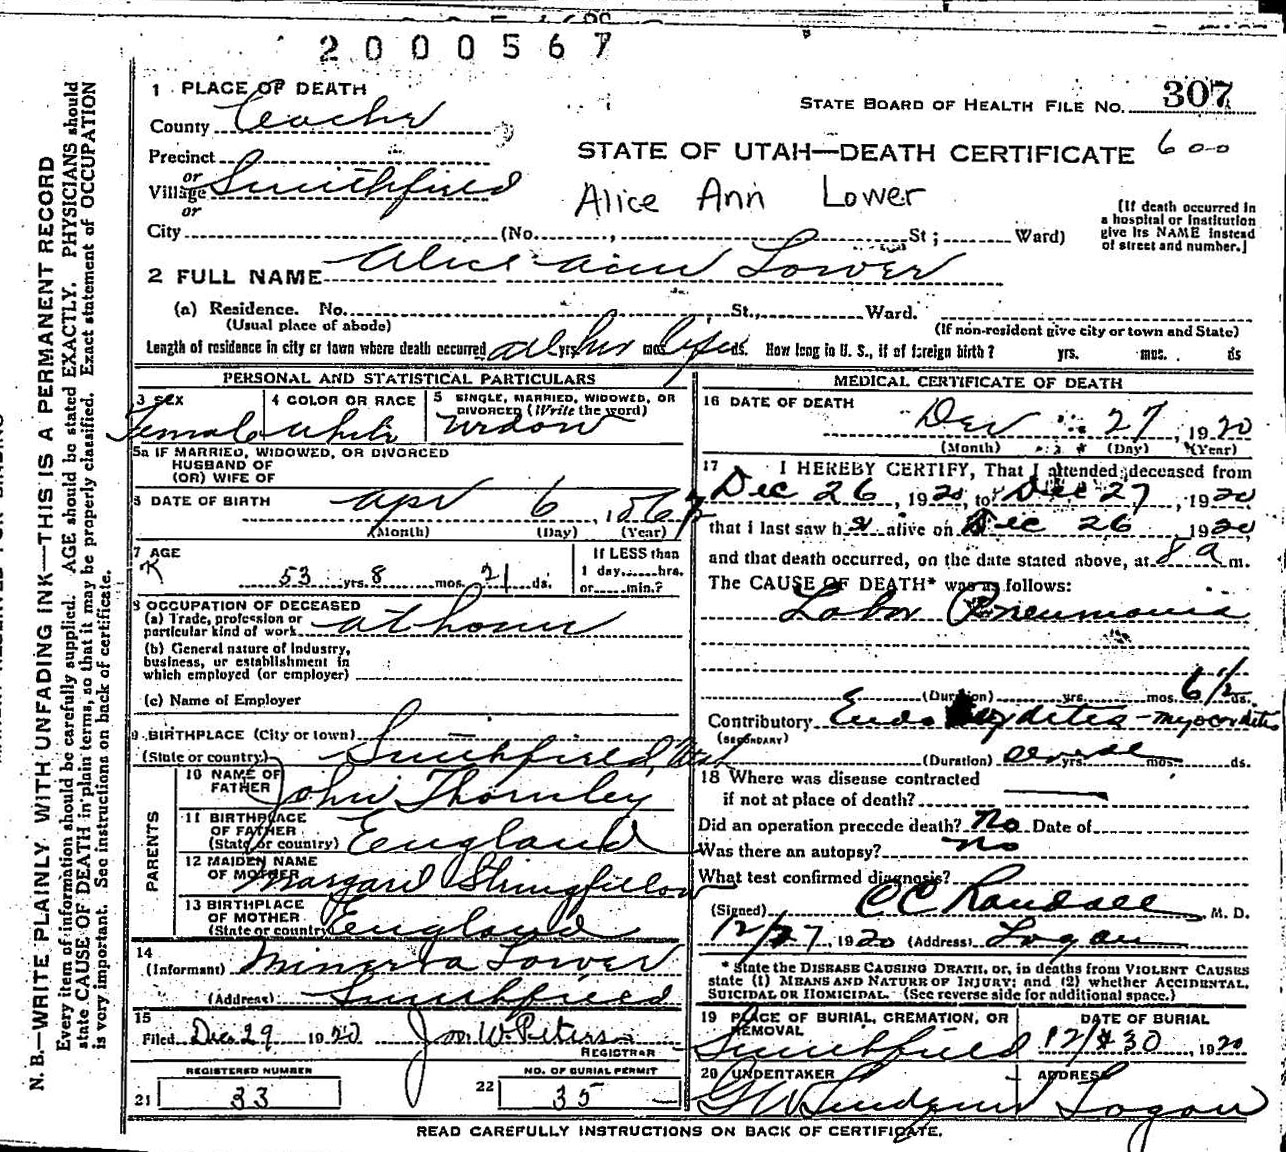 2000567
1 PLACE OF DEATH
STATE BOARD OF HEALTH FILE NO. 307
County Cache
STATE OF UTAH—DEATH CERTIFICATE 600
Precinct
or
Village Smithfield
or
Alice Ann Lower
[If death occurred in
a hospital or institution
give its NAME instead
of street and number.]
City (No. , St; Ward)
2 FULL NAME Alice Ann Lower
(a) Residence. No. St., Ward.
(Usual place of abode)
(If non-resident give city or town and State)
Length of residence in city or town where death occurred all her life yrs. mos. ds. How long in U. S., if of foreign birth? yrs. mos. ds
PERSONAL AND STATISTICAL PARTICULARS
3 SEX
Female
4 COLOR OR RACE
White
5 SINGLE, MARRIED, WIDOWED, OR
DIVORCED (Write the word)
Widow
5a IF MARRIED, WIDOWED, OR DIVORCED
HUSBAND OF
(OR) WIFE OF
6 DATE OF BIRTH Apr 6, 1867
(Month) (Day) (Year)
7 AGE
53 yrs. 8 mos. 21 ds.
If LESS than
1 day......hrs.
or......min.?
8 OCCUPATION OF DECEASED
(a) Trade, profession or
particular kind of work at home
(b) General nature of Industry,
business, or establishment in
which employed (or employer)
(c) Name of Employer
9 BIRTHPLACE (City or town)
(State or country) Smithfield, Utah
PARENTS
10 NAME OF
FATHER John Thornley
11 BIRTHPLACE
OF FATHER
(State or country) England
12 MAIDEN NAME
OF MOTHER Margard Stringfellow
13 BIRTHPLACE
OF MOTHER
(State or country England
14
(Informant) Minerva Lower
(Address) Smithfield
15
Filed Dec. 29 1920 W. Peterson
REGISTRAR
REGISTERED NUMBER
21 33
NO. OF BURIAL PERMIT
22 35
MEDICAL CERTIFICATE OF DEATH
16 DATE OF DEATH
Dec 27, 1920
(Month) (Day) (Year)
17 I HEREBY CERTIFY, That I attended deceased from
Dec 26, 1920, to Dec 27, 1920
that i last saw her alive on Dec 26 1920
and that death occurred, on the date stated above, at 8 a m.
The CAUSE OF DEATH* was as follows:
Lobar Pneumonia
(Duration) yrs. mos. 6 1/2 ds.
Contributory Endocarditis - myocarditis
(SECONDARY)
(Duration) yrs. mos. ds.
18 Where was disease contracted
if not at place of death?
Did an operation precede death? No Date of
Was there an autopsy? no
What test confirmed diagnosis?
(Signed) CC Randall M. D.
12/27, 1920 (Address) Logan
* State the DISEASE CAUSING DEATH, or, in deaths from VIOLENT CAUSES
state (1) MEANS AND NATURE OF INJURY; and (2) whether ACCIDENTAL,
SUICIDAL OR HOMICIDAL. (See reverse side for additional space.)
19 PLACE OF BURIAL, CREMATION, OR
REMOVAL
Smithfield
DATE OF BURIAL
12/30, 1920
20 UNDERTAKER
ADDRESS
Logan
READ CAREFULLY INSTRUCTIONS ON BACK OF CERTIFICATE.
N. B.—WRITE PLAINLY, WITH UNFADING INK—THIS IS A PERMANENT RECORD
Every item of information should be carefully supplied. AGE should be stated EXACTLY. PHYSICIANS should
state CAUSE OF DEATH in plain terms, so that it may be properly classified. Exact statement of OCCUPATION
is very important. See instructions on back of certificate.